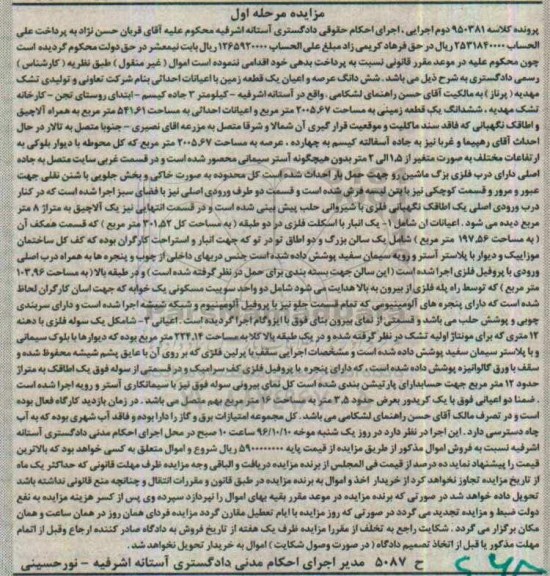 مزایده مرحله اول
پرونده کلاسه ۹۵۰۳۸۱ دوم اجرایی، اجرای احکام حقوقی دادگستری آستانه اشرفیه محکوم علیه آقای قربان حسن نژاد به پرداخت علی
الحساب ۲۵۳۱۸۴۰۰۰۰ ریال در حق فرهاد کریمی زاد مبلغ علی الحساب ۱۲۶۵۹۲۰۰۰۰ ریال بابت نیمعشر در حق دولت محکوم گردیده است
چون محکوم علیه در موعد مقرر قانونی نسبت به پرداخت بدهی خود اقدامی ننموده است اموال (غیر منقول) طبق نظریه (کارشناس)
رسمی دادگستری به شرح ذیل می باشد. شش دانگ عرصه و اعیان یک قطعه زمین با اعیانات احداثی بنام شرکت تعاونی و تولیدی تشک
مهدیه (پرناز) به مالکیت آقای حسن راهنمای لشکامی. واقع در آستانه اشرفیه - کیلومتر ۳ جاده کیسم - ابتدای روستای تجن - کارخانه
تشک مهدیه، ششدانگ یک قطعه زمینی به مساحت ۲۰۰۵.۶۷ متر مربع و اعیانات احداثی به مساحت ۵۴۱.۶۱ متر مربع به همراه آلاچیق
و اطاقک نگهبانی که فاقد سند مالکیت و موقعیت قرار گیری آن شمالا و شرقا متصل به مزرعه اقای نصیری - جنوبا متصل به تالار در حال
احداث آقای رهپیما و غربا نیز به جاده آسفالته کیسم به چهارده. عرصه به مساحت ۲۰۰۵.۶۷ متر مربع که کل محوطه با دیوار بلوکی به
ارتفاعات مختلف به صورت متغیر از ۱.۵ الی ۲ متر بدون هیچگونه آستر سیمانی محصور شده است و در قسمت غربی سایت متصل به جاده
اصلی دارای درب فلزی بزرگ ماشین رو جهت حمل بار احداث شده است کل محدوده به صورت خاکی و بخش جلویی با شنن نقلی جهت
عبور و مرور و قسمت کوچکی نیز با بتن لیسه فرش شده است و قسمت دو طرف ورودی اصلی نیز با فضای سبز اجرا شده است که در کنار
درب ورودی اصلی یک اطاقک نگهبانی فلزی با شیروانی حلب پیش بینی شده است و در قسمت انتهایی نیز یک آلاچیق به متراژ ۸ متر
مربع دیده می شود. اعیانات ان شامل ۱- یک انبار با اسکلت فلزی در دو طبقه (به مساحت کل ۳۰۱.۵۲ متر مربع) که قسمت همکف آن
(به مساحت ۱۹۷.۵۶ متر مربع) شامل یک سالن بزرگ و دو اطاق تو در تو که جهت انبار و استراحت کارگران بوده که کف کل ساختمان
موزاییک و دیوار با پلاستر آستر و رویه سیمان سفید پوشش داده شده است جنس دربهای داخلی از چوب و پنجره ها به همراه درب اصلی
ورودی با پروفیل فلزی اجرا شده است (این سالن جهت بسته بندی برای حمل در نظر گرفته شده است) و در طبقه بالا (به مساحت ۱۰۳.۹۶
متر مربع) که توسط راه پله فلزی از بیرون به بالا هدایت می شود شامل دو واحد سوییت مسکونی یک خوابه که جهت اسان کارگران لحاظ
شده است که دارای پنجره های آلومینیومی که تمام قسمت جلو نیز با پروفیل آلومینیوم و شبکه شیشه اجرا شده است و دارای سربندی
چوبی و پوشش حلب می باشد و قسمتی از نمای بیرون بنای فوق با ایزوگام اجرا گردیده است. اعیانی ۲- شامکل یک سوله فلزی با دهنه
۱۲ متری که برای مونتاژ اولیه تشک در نظر گرفته شده و در یک طبقه بالا کلا به مساحت ۲۲۴.۱۴ متر مربع بوده که دیوارها با بلوک سیمانی
و با پلاستر سیمان سفید پوشش داده شده است و مشخصات اجرایی سقف با پرلین فلزی که بر روی آن با عایق پشم شیشه محفوظ شده و
سقف با ورق گالوانیزه پوشش داده شده است. که دارای پنجره با پروفیل فلزی کف سرامیک و در قسمتی از سوله فوق یک اطاقک به متراژ
حدود ۱۲ متر مربع جهت حسابدارای پارتیشن بندی شده است کل نمای بیرونی سوله فوق نیز با سیمانکاری آستر و رویه اجرا شده است
. ضمنا دو اعیانی فوق با یک کریدور بعرض حدود ۳.۵ متر به مساحت ۱۶ متر مربع بهم متصل می باشد. در زمان بازدید کارگاه فعال بوده
است و در تصرف مالک آقای حسن راهنمای لشکامی می باشد. کل مجموعه امتیازات برق و گاز را دارا بوده و فاقد آب شهری بوده که به آب
چاه دسترسی دارد. این اجرا در نظر دارد در روز یک شنبه موخه ۹۶/۱۰/۱۰ ساعت ۱۰ صبح در محل اجرای احکام مدنی دادگستری آستانه
اشرفیه نسبت به فروش اموال مذکور از طریق مزایده از قیمت پایه ۵۹۰۰۰۰۰۰۰۰ ریال شروع و اموال متعلق به کسی خواهد بود که بالاترین
قیمت را پیشنهاد نماید ده درصد از قیمت فی المجلس از برنده مزایده دریافت و الباقی وجه مزایده ظرف مهلت قانونی که حداکثر یک ماه
از تاریخ مزایده تجاوز نخواهد کرد از خریدار اخذ و اموال به برنده مزایده در طبق قانون و مقررات انتقال و چنانچه منع قانونی نداشته باشد
تحویل داده خواهد شد در صورتی که برنده مزایده در موعد مقرر بقیه بهای اموال را نپردازد سپرده وی پس از کسر هزینه مزایده به نفع
دولت ضبط و مزایده تجدید می گردد در صورتی که روز مزایده با ایام تعطیل مقارن گردد مزایده فردای همان روز در همان ساعت و همان
مکان برگزار می گردد. شکایت راجع به تخلف از مقررا مزایده ظرف یک هفته از تاریخ فروش به دادگاه صادر کننده ارجاع وقبل از اتمام
مهلت مذکور یا قبل از اتخاذ تصمیم دادگاه (در صورت وصول شکایت) اموال به خریدار تحویل نخواهد شد.
ح ۵۰۸۷ مدیر اجرای احکام مدنی دادگستری آستانه اشرفیه - نورحسینی